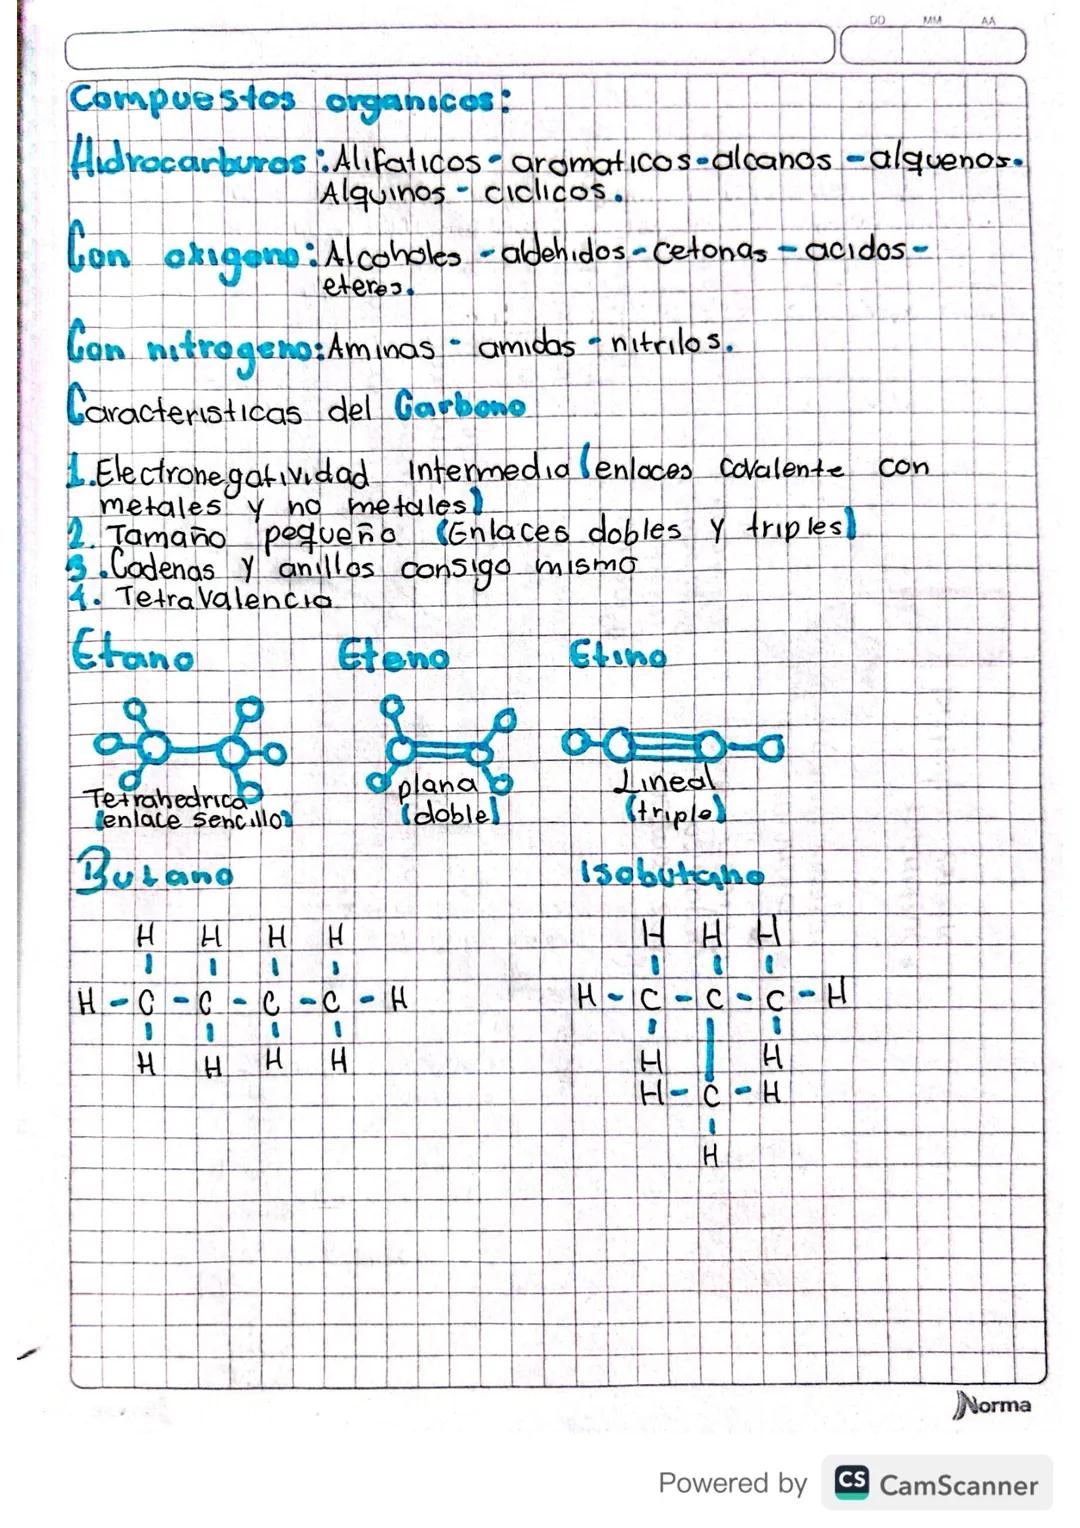 DD MM AA
Compuestos organicos:
Hidrocarburos: Alifaticos - aromaticos - alcanos - alquenos.
Alquinos - ciclicos.
Con oxigeno: Alcoholes - aldehidos - cetonas - acidos -
eteres.
Con nitrogeno: Aminas - amidas - nitrilos.
Caracteristicas del Carbono
1. Electronegatividad intermedia (enlaces covalente con
metales y no metales)
2. Tamaño pequeño (Enlaces dobles y triples)
3. Cadenas y anillos consigo mismo
4. Tetravalencia
Etano Eteno Etino
Tetrahedrica plana Lineal
(enlace sencillo) (doble) (triple)
Butano Isobutano
H H H H H H H
H - C - C - C - C - H H - C - C - C - H
H H H H H H
H - C - H
H
Norma
Powered by CS CamScanner